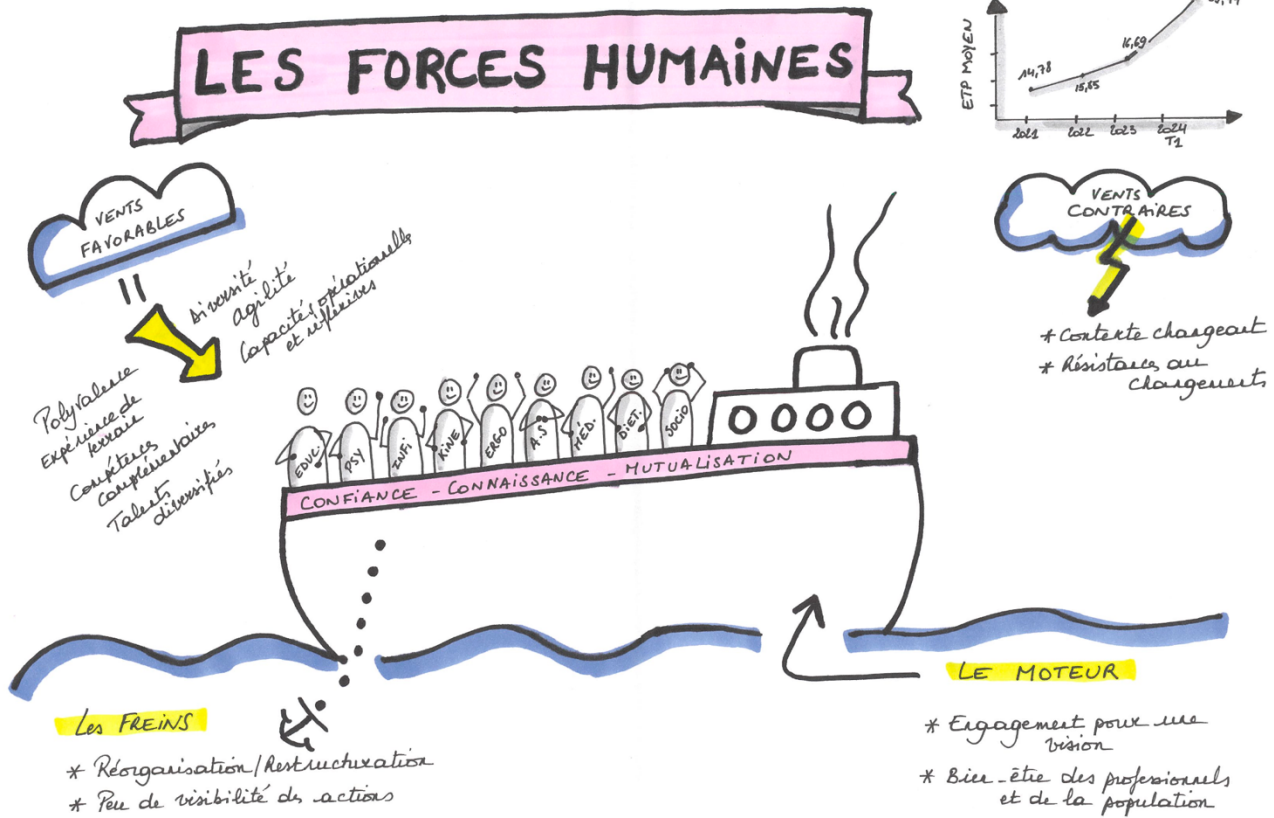 LES FORCES HUMAINES
ETP MOYEN
14,78
15,55
16,69
2021
2022
2023
2024
T1
VENTS
FAVORABLES
Diversité
agilité
Capacités opérationnelles
et réflexives
Polyvalence
Expérience de
terrain
Compétences
complémentaires
Talents
diversifiés
VENTS
CONTRAIRES
* Contexte changeant
* Résistances au
changements
EDUC.
PSY
INFI
KINE
ERGO
A.S
MÉD.
DIET.
SOCIO
CONFIANCE - CONNAISSANCE - MUTUALISATION
Les FREINS
* Réorganisation/Restructuration
* Peu de visibilité des actions
LE MOTEUR
* Engagement pour une
vision
* Bien-être des professionnels
et de la population